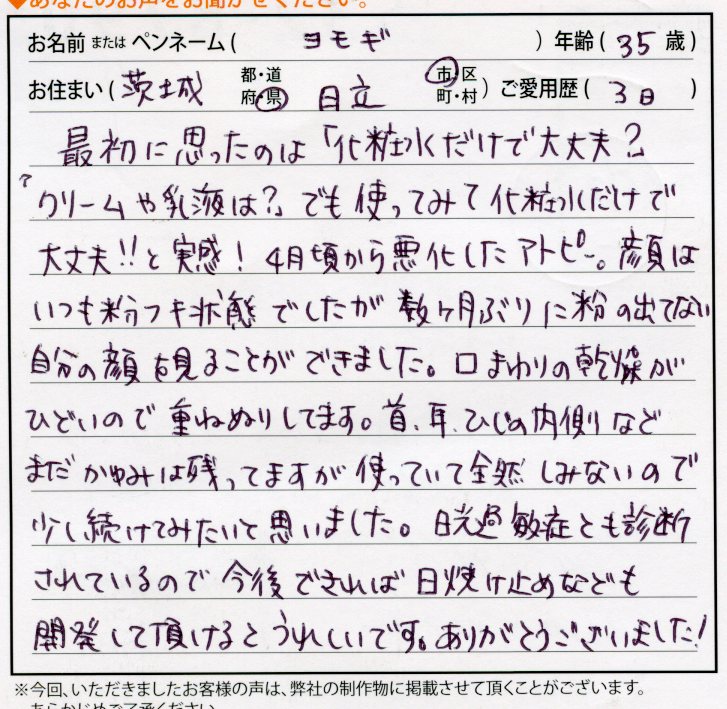 ◆あなたのお声をお聞かせください。
お名前 または ペンネーム ( ヨモギ ) 年齢 ( 35 歳 )
お住まい ( 茨城 都・道 府・県 日立 市・区 町・村 ) ご愛用歴 ( 3日 )
最初に思ったのは「化粧水だけで大丈夫?
クリームや乳液は?」でも使ってみて化粧水だけで
大丈夫!!と実感! 4月頃から悪化したアトピー。顔は
いつも粉フキ状態でしたが数ヶ月ぶりに粉の出てない
自分の顔を見ることができました。口まわりの乾燥が
ひどいので重ねぬりしてます。首、耳、ひじの内側など
まだかゆみは残ってますが使っていて全然しみないので
少し続けてみたいと思いました。日光過敏症とも診断
されているので今後できれば日焼け止めなども
開発して頂けるとうれしいです。ありがとうございました!
※今回、いただきましたお客様の声は、弊社の制作物に掲載させて頂くことがございます。
あらかじめご了承ください。